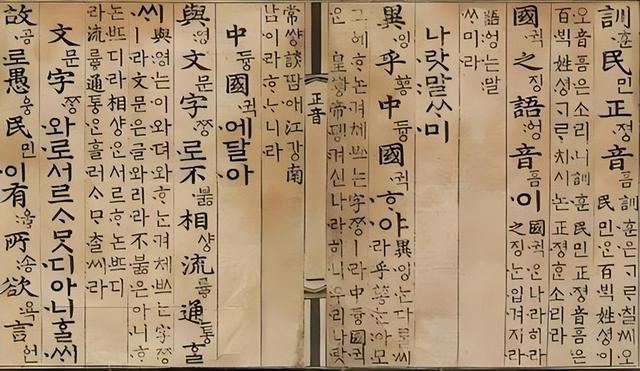 訓民민正졍音흠 訓훈은ᄀᆞᄅᆞ칠씨오
民민ᄋᆞᆫ百ᄇᆡᆨ姓셩이
오音흠은소리니訓훈民민正졍音흠은
百ᄇᆡᆨ姓셩ᄀᆞᄅᆞ치시논正졍ᄒᆞᆫ소리라
國귁之징語ᅌᅥᆼ音흠이 國귁ᄋᆞᆫ나라히라
之징ᄂᆞᆫ입겨지라
語ᅌᅥᆼ는말
ᄊᆞ미라
나랏말ᄊᆞ미
異잉乎ᅘᅩᆼ中듕國귁ᄒᆞ야 異잉ᄂᆞᆫ다ᄅᆞᆯ씨
라乎ᅘᅩᆼᄂᆞᆫ아모
그ᅌᅦᄒᆞ논겨체ᄡᅳ는字ᄍᆞᆼㅣ라中듕國귁
ᄋᆞᆫ皇ᅘᅪᆼ帝뎽겨신나라히니우리나랏
正音
常썅談땀애江강南
남이라ᄒᆞᄂᆞ니라
中듕國귁에달아
與영文문字ᄍᆞᆼ로不붏相샹流륳通통ᄒᆞᆯ
ᄊᆡ 與영는이와뎌와ᄒᆞ는겨체ᄡᅳ는字ᄍᆞᆼ
ㅣ라文문은글와리라不붏은아니ᄒᆞ
논ᄠᅳ디라相샹ᄋᆞᆫ서르ᄒᆞ논ᄠᅳ디
라流륳通통ᄋᆞᆫ흘러ᄉᆞᄆᆞᄎᆞᆯ씨라
文문字ᄍᆞᆼ와로서르ᄉᆞᄆᆞᆺ디아니ᄒᆞᆯᄊᆡ
故공로愚웅民민이有ᅌᅮᇢ所송欲욕言언